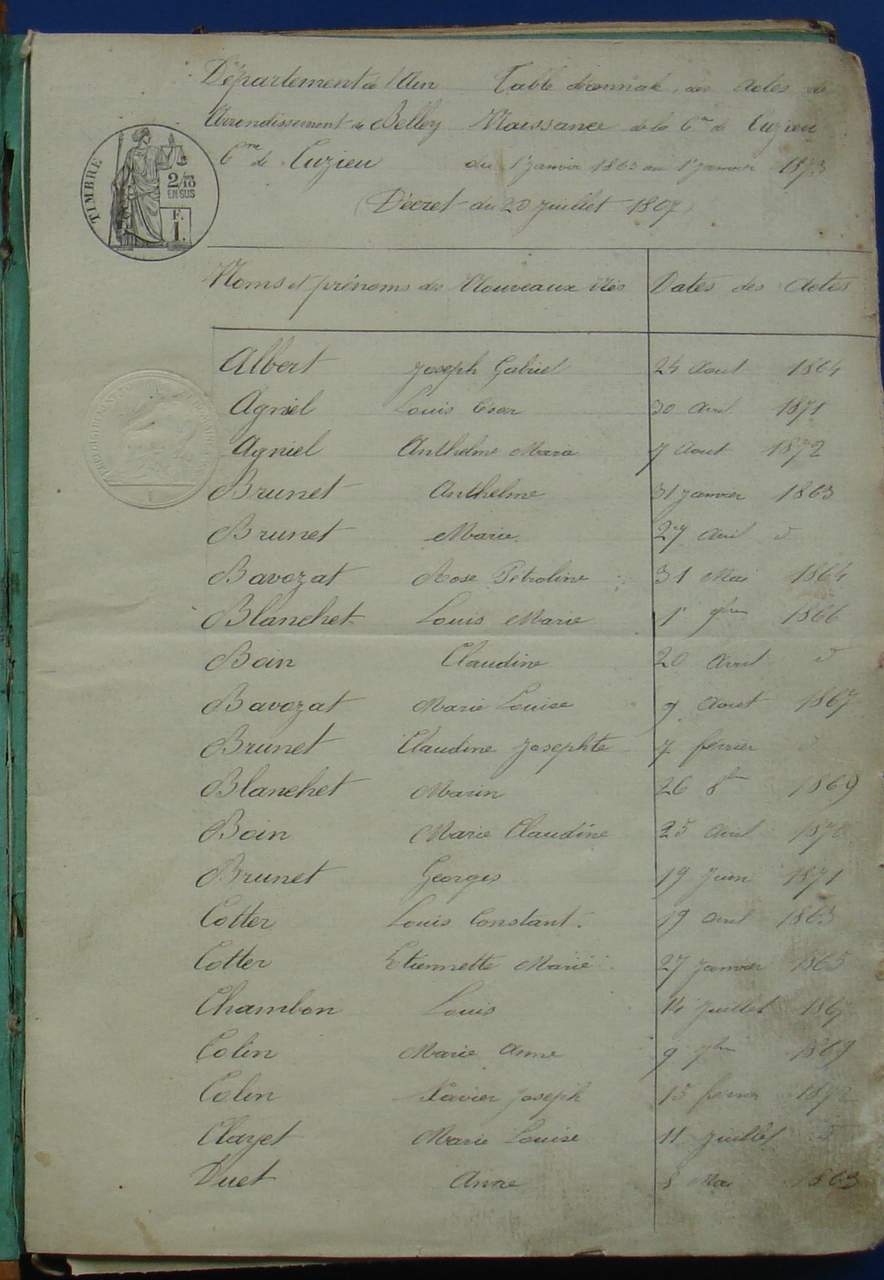 Département de l'Ain Table décennale des Actes de
Arrondissement de Belley Naissance de la Cne de Cuzieu
Cne de Cuzieu du 1er janvier 1863 au 1er janvier 1873
(Décret du 20 juillet 1807)
TIMBRE
2/10
EN SUS
F.
1.
Noms et prénoms des Nouveaux Nés Dates des Actes
Albert Joseph Gabriel 24 Aout 1864
Agniel Louis César 30 Avril 1871
Agniel Anthelme Marie 7 Aout 1872
Brunet Anthelme 31 janvier 1863
Brunet Marie 27 Avril d
Bavozat Rose Pétroline 31 Mai 1864
Blanchet Louis Marie 1er 9bre 1866
Boin Claudine 20 Avril d
Bavozat Marie Louise 9 Aout 1867
Brunet Claudine Josephte 7 février d
Blanchet Marin 26 8bre 1869
Boin Marie Claudine 25 Avril 1870
Brunet Georges 19 Juin 1871
Cotter Louis Constant. 19 Avril 1863
Cotter Etiennette Marie 27 Janvier 1865
Chambon Louis 14 Juillet 1867
Colin Marie Anne 9 7bre 1869
Colin Xavier Joseph 15 février 1872
Clayet Marie Louise 11 Juillet d
Duet Anne 8 Mai 1863